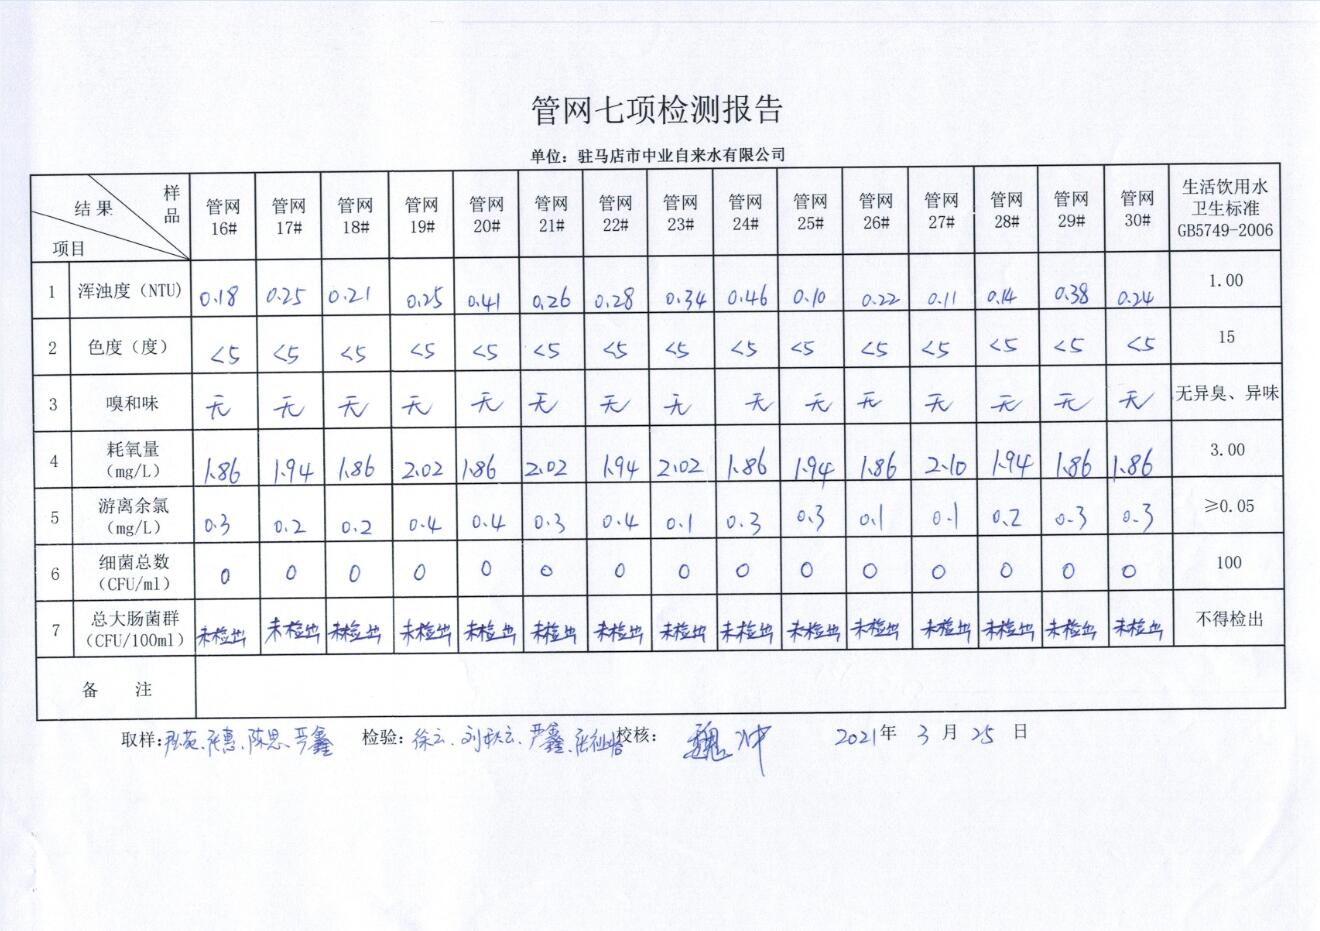 管网七项检测报告
单位：驻马店市中业自来水有限公司
样品 结果 项目 管网16# 管网17# 管网18# 管网19# 管网20# 管网21# 管网22# 管网23# 管网24# 管网25# 管网26# 管网27# 管网28# 管网29# 管网30# 生活饮用水卫生标准GB5749-2006
1 浑浊度（NTU) 0.18 0.25 0.21 0.25 0.41 0.26 0.28 0.34 0.46 0.10 0.22 0.11 0.14 0.38 0.24 1.00
2 色度（度） <5 <5 <5 <5 <5 <5 <5 <5 <5 <5 <5 <5 <5 <5 <5 15
3 嗅和味 无 无 无 无 无 无 无 无 无 无 无 无 无 无 无 无异臭、异味
4 耗氧量（mg/L） 1.86 1.94 1.86 2.02 1.86 2.02 1.94 2.02 1.86 1.94 1.86 2.10 1.94 1.86 1.86 3.00
5 游离余氯（mg/L） 0.3 0.2 0.2 0.4 0.4 0.3 0.4 0.1 0.3 0.3 0.1 0.1 0.2 0.3 0.3 ≥0.05
6 细菌总数（CFU/ml） 0 0 0 0 0 0 0 0 0 0 0 0 0 0 0 100
7 总大肠菌群（CFU/100ml） 未检出 未检出 未检出 未检出 未检出 未检出 未检出 未检出 未检出 未检出 未检出 未检出 未检出 未检出 未检出 不得检出
备 注
取样：张惠、陈思、严鑫 检验：徐云、严鑫、 校核：魏冲 2021年 3 月 25 日